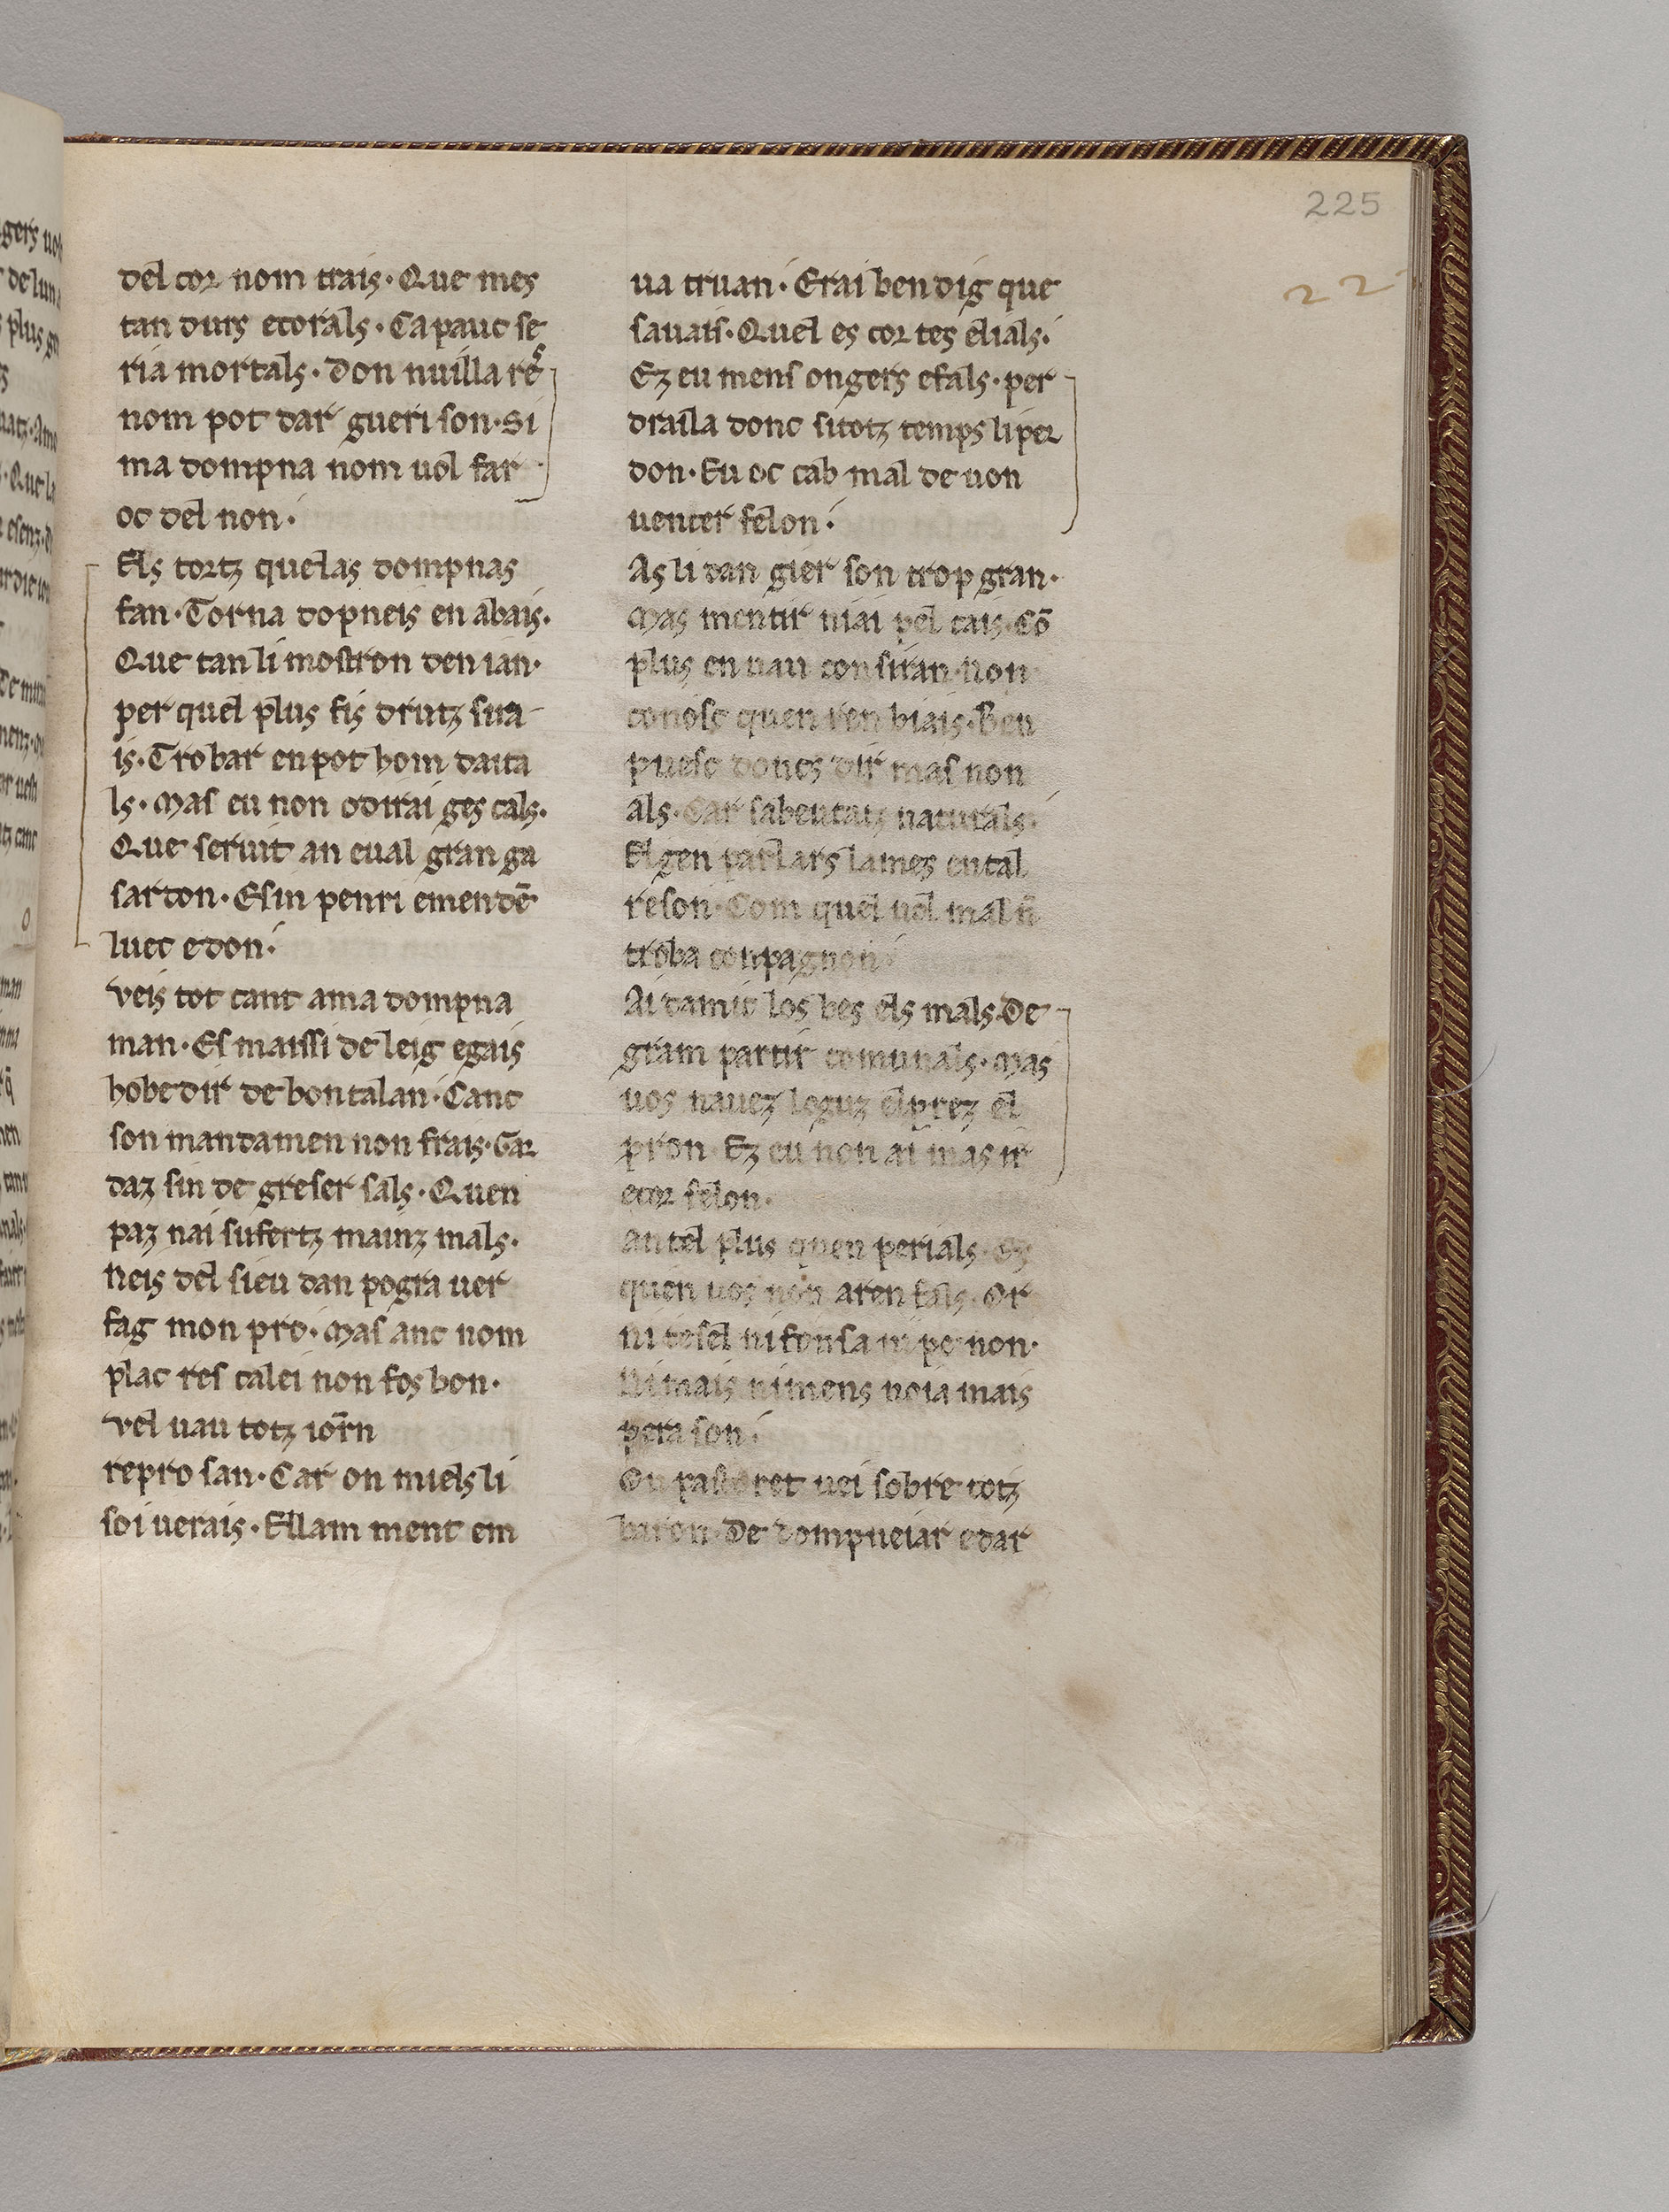 225
22
del cor nom trais · Que mes
tan durs ecorals · Ca pauc se
ria mortals · Don nuilla res
nom pot dar gueri son · Si
ma dompna nom uol far
oc del non ·
Els tortz quelas dompnas
fan · Torna dopneis en abais ·
Que tan li mostron den ian ·
per quel plus fis drutz sua
is · Trobar en pot hom daita
ls · Mas eu non o dirai ges cals ·
Que seruit an eual gran ga
sardon · Esin penri emendē
luec e don ·
Veis tot cant ama dompna
man · Es maissi de leig egais
hobedir de bon talan · Canc
son mandamen non frais · Gar
daz sin de greser sals · Quen
paz nai sufertz mainz mals ·
Neis del sieu dan pogra uer
fag mon pro · Mas anc nom
plac res calei non fos bon ·
Vel uau totz iorn
repro san · Car on miels li
soi uerais · Ellam ment em
ua truan · Erai ben dig que
sauais · Quel es cor tes elials ·
Ez eu mens ongers efals · per
draila donc si totz temps li per
don · Eu oc cab mal de uon
uenter felon ·
As li dan gier son trop gran ·
Mas mentir niai pel cais · Cō
plus en uau con siran · non
conosc quen ren biais · Ben
puesc doncs dir mas non
als · Car sabeutatz naturals ·
El gen parlars lames en tal
reson · Com quel uol mal ñ
troba conpagnon ·
Ai damic los bes els mals · De
gram partir comunals · Mas
uos nauez loguz el prez el
pron · Ez eu non ai mas ir
ecor felon ·
an tel plus quen perials
quen uos non aren fals · Or
ni ni fon sa ni pe non ·
Ni mais ni mens noia mais
pera son ·
On pastoret uei sobre totz
baron · De dompneiar e dar